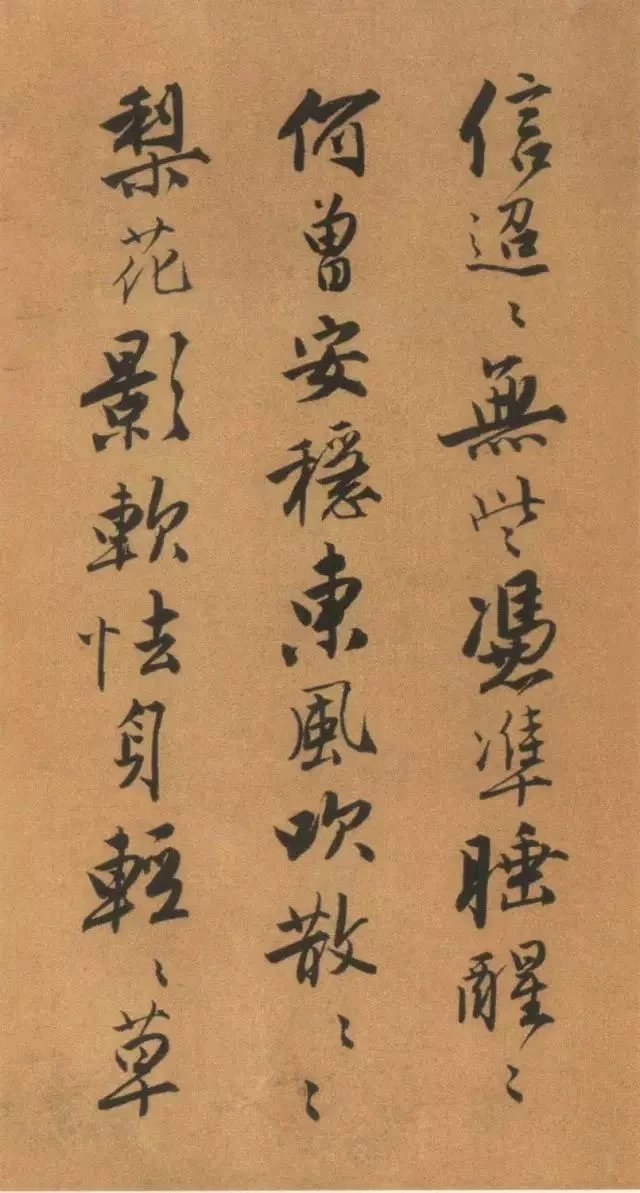 信迢〻無些憑準睡醒〻
何曾安穩東風吹散〻〻
梨花影軟怯身輕〻草